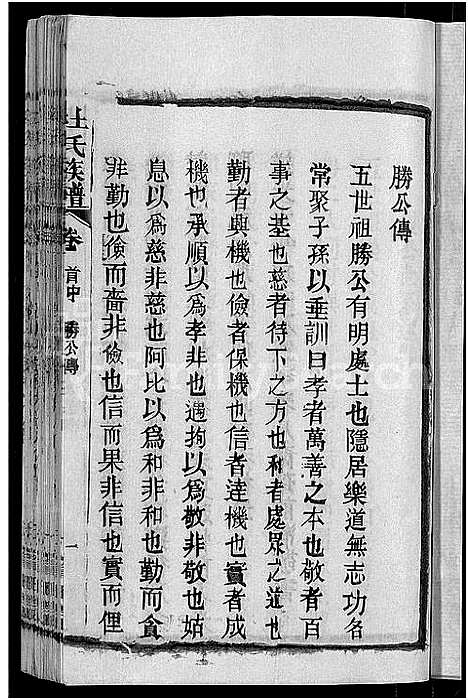 勝公傳
五世祖勝公有明處士也隱居樂道無志功名
常聚子孫以垂訓曰孝者萬善之本也敬者百
事之基也慈者待下之方也和者處眾之道也
勤者興機也儉者保機也信者達機也實者成
機也承順以為孝非孝也過拘以為敬非敬也姑
息以為慈非慈也阿比以為和非和也勤而貪
非勤也儉而嗇非儉也信而果非信也實而俚
杜氏族譜 卷首中 勝公傳 一